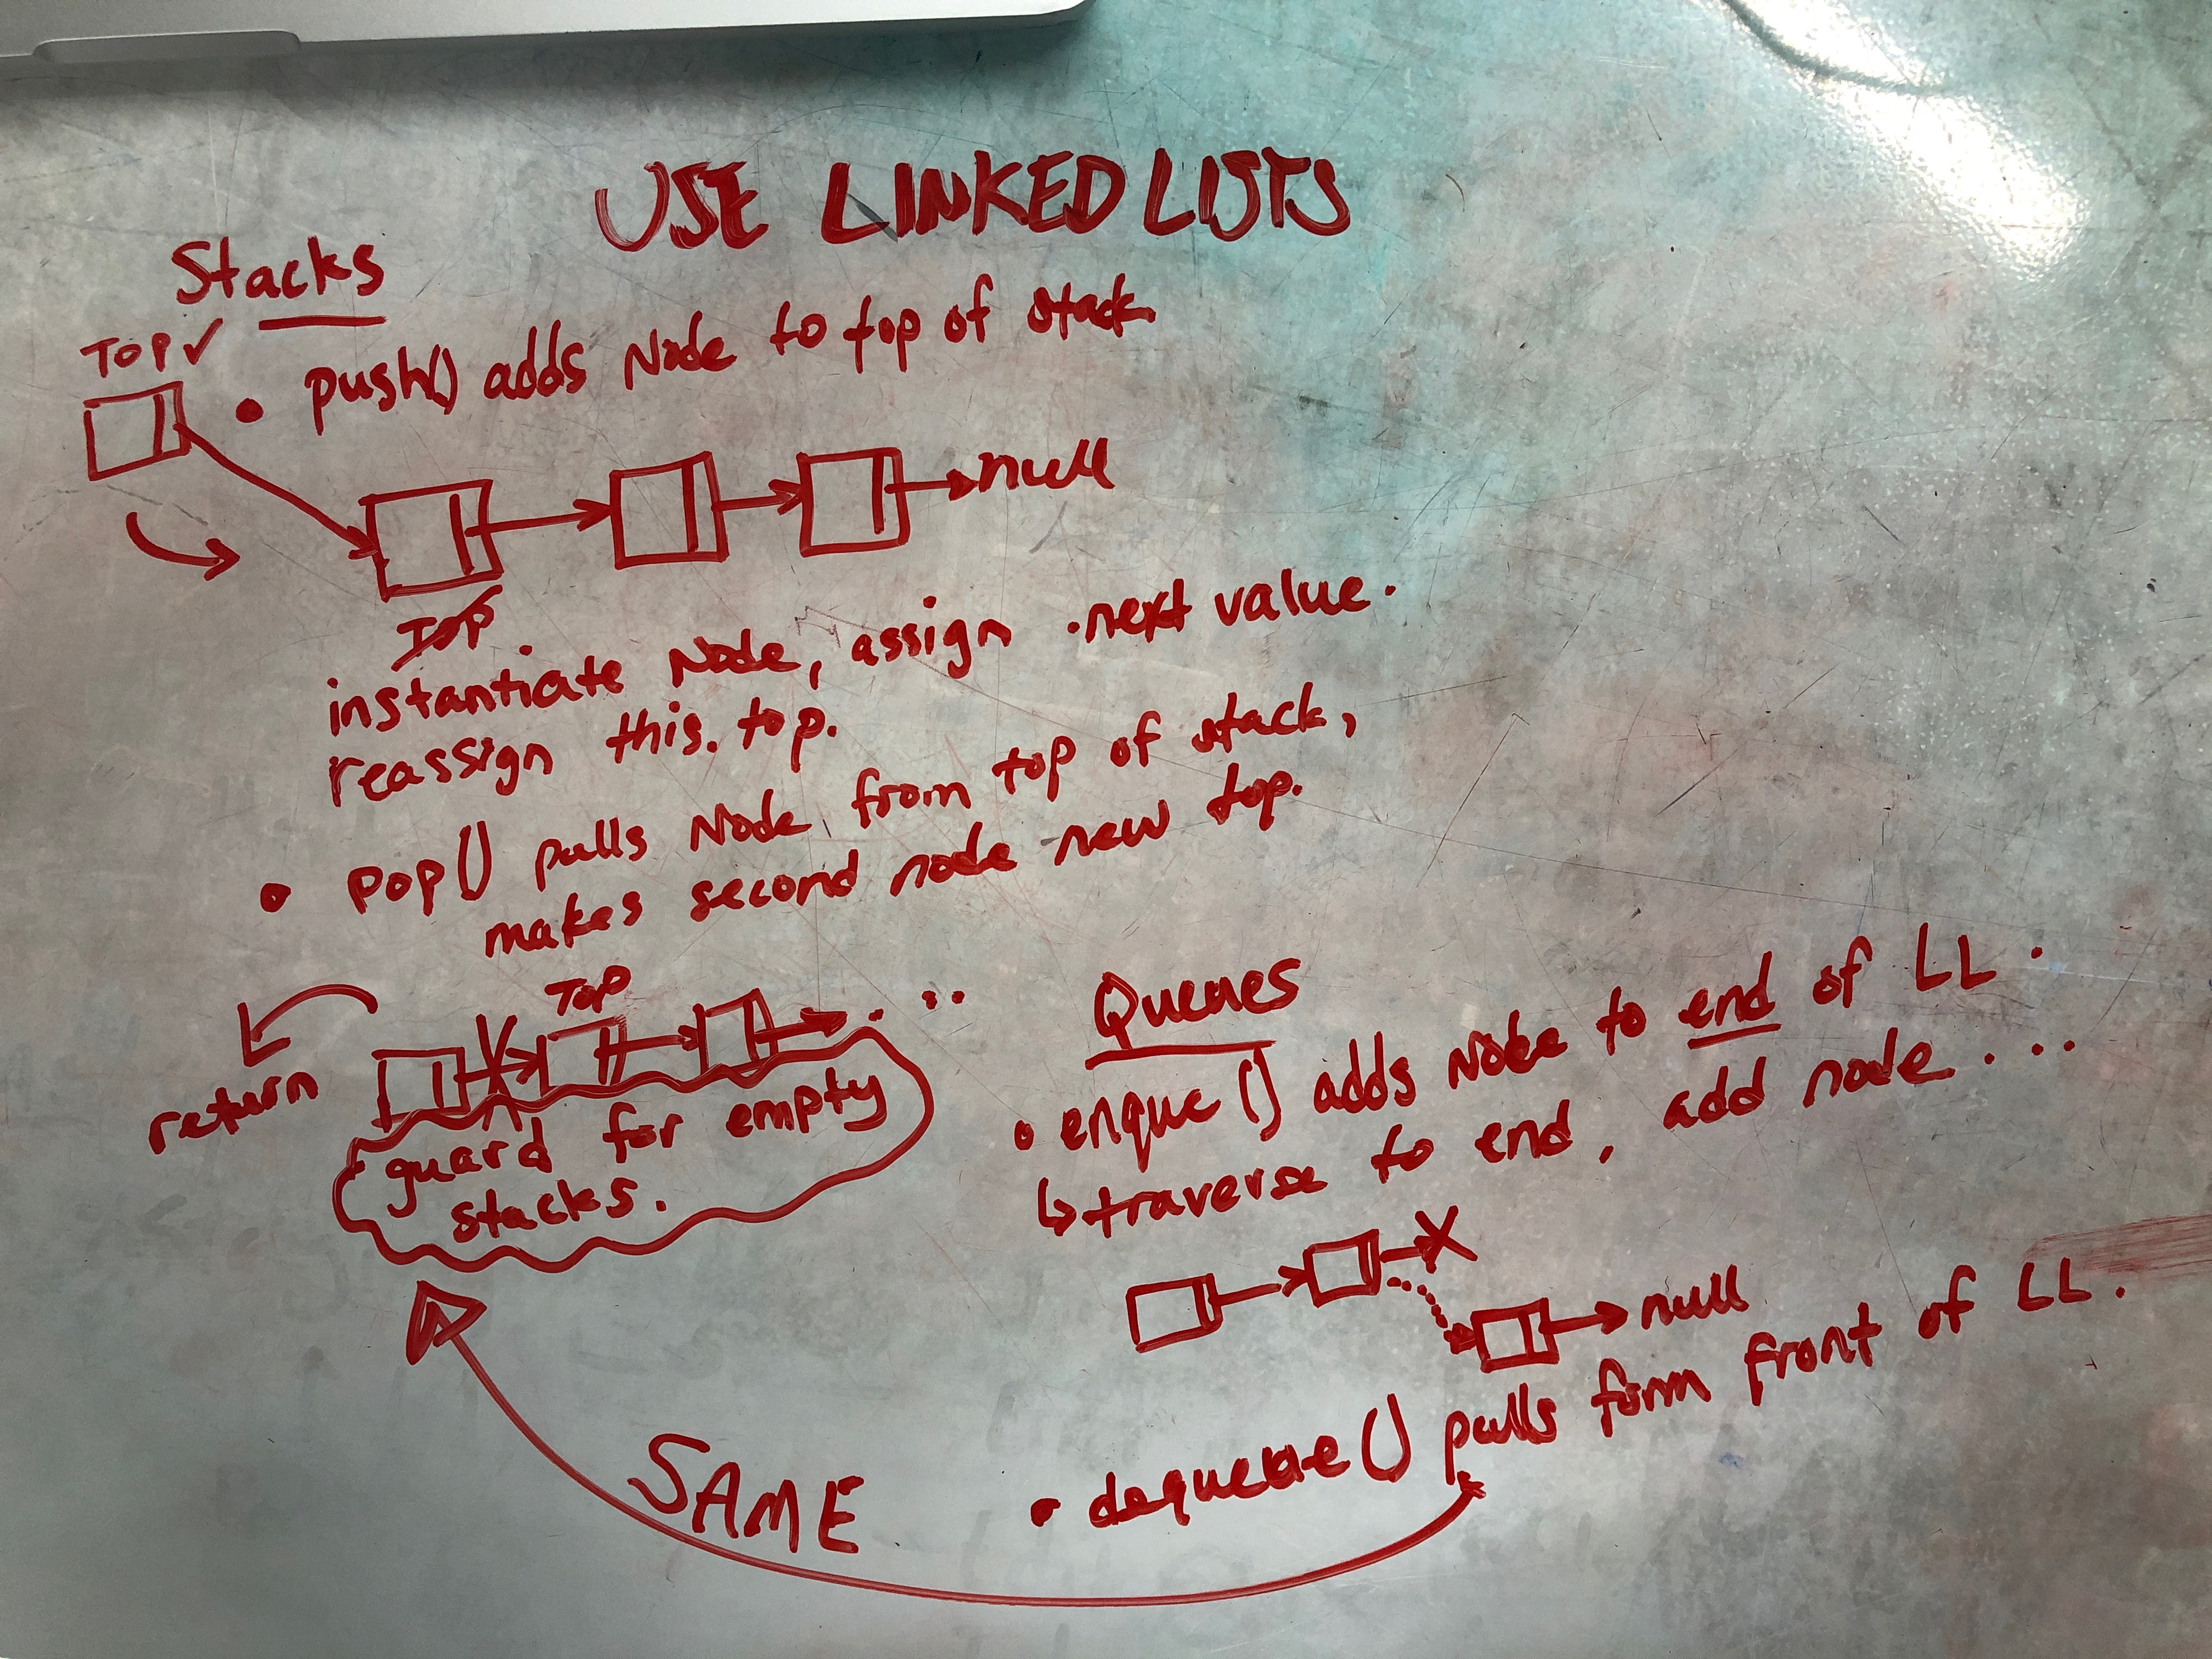 USE LINKED LISTS
Stacks
TOP ✓
• push() adds Node to top of stack
null
TOP
instantiate Node, assign .next value.
reassign this.top.
• pop() pulls Node from top of stack,
makes second node new top.
TOP
return
guard for empty
stacks.
Queues
• enque() adds Node to end of LL.
↳ traverse to end, add node...
X
null
• dequeue() pulls form front of LL.
SAME